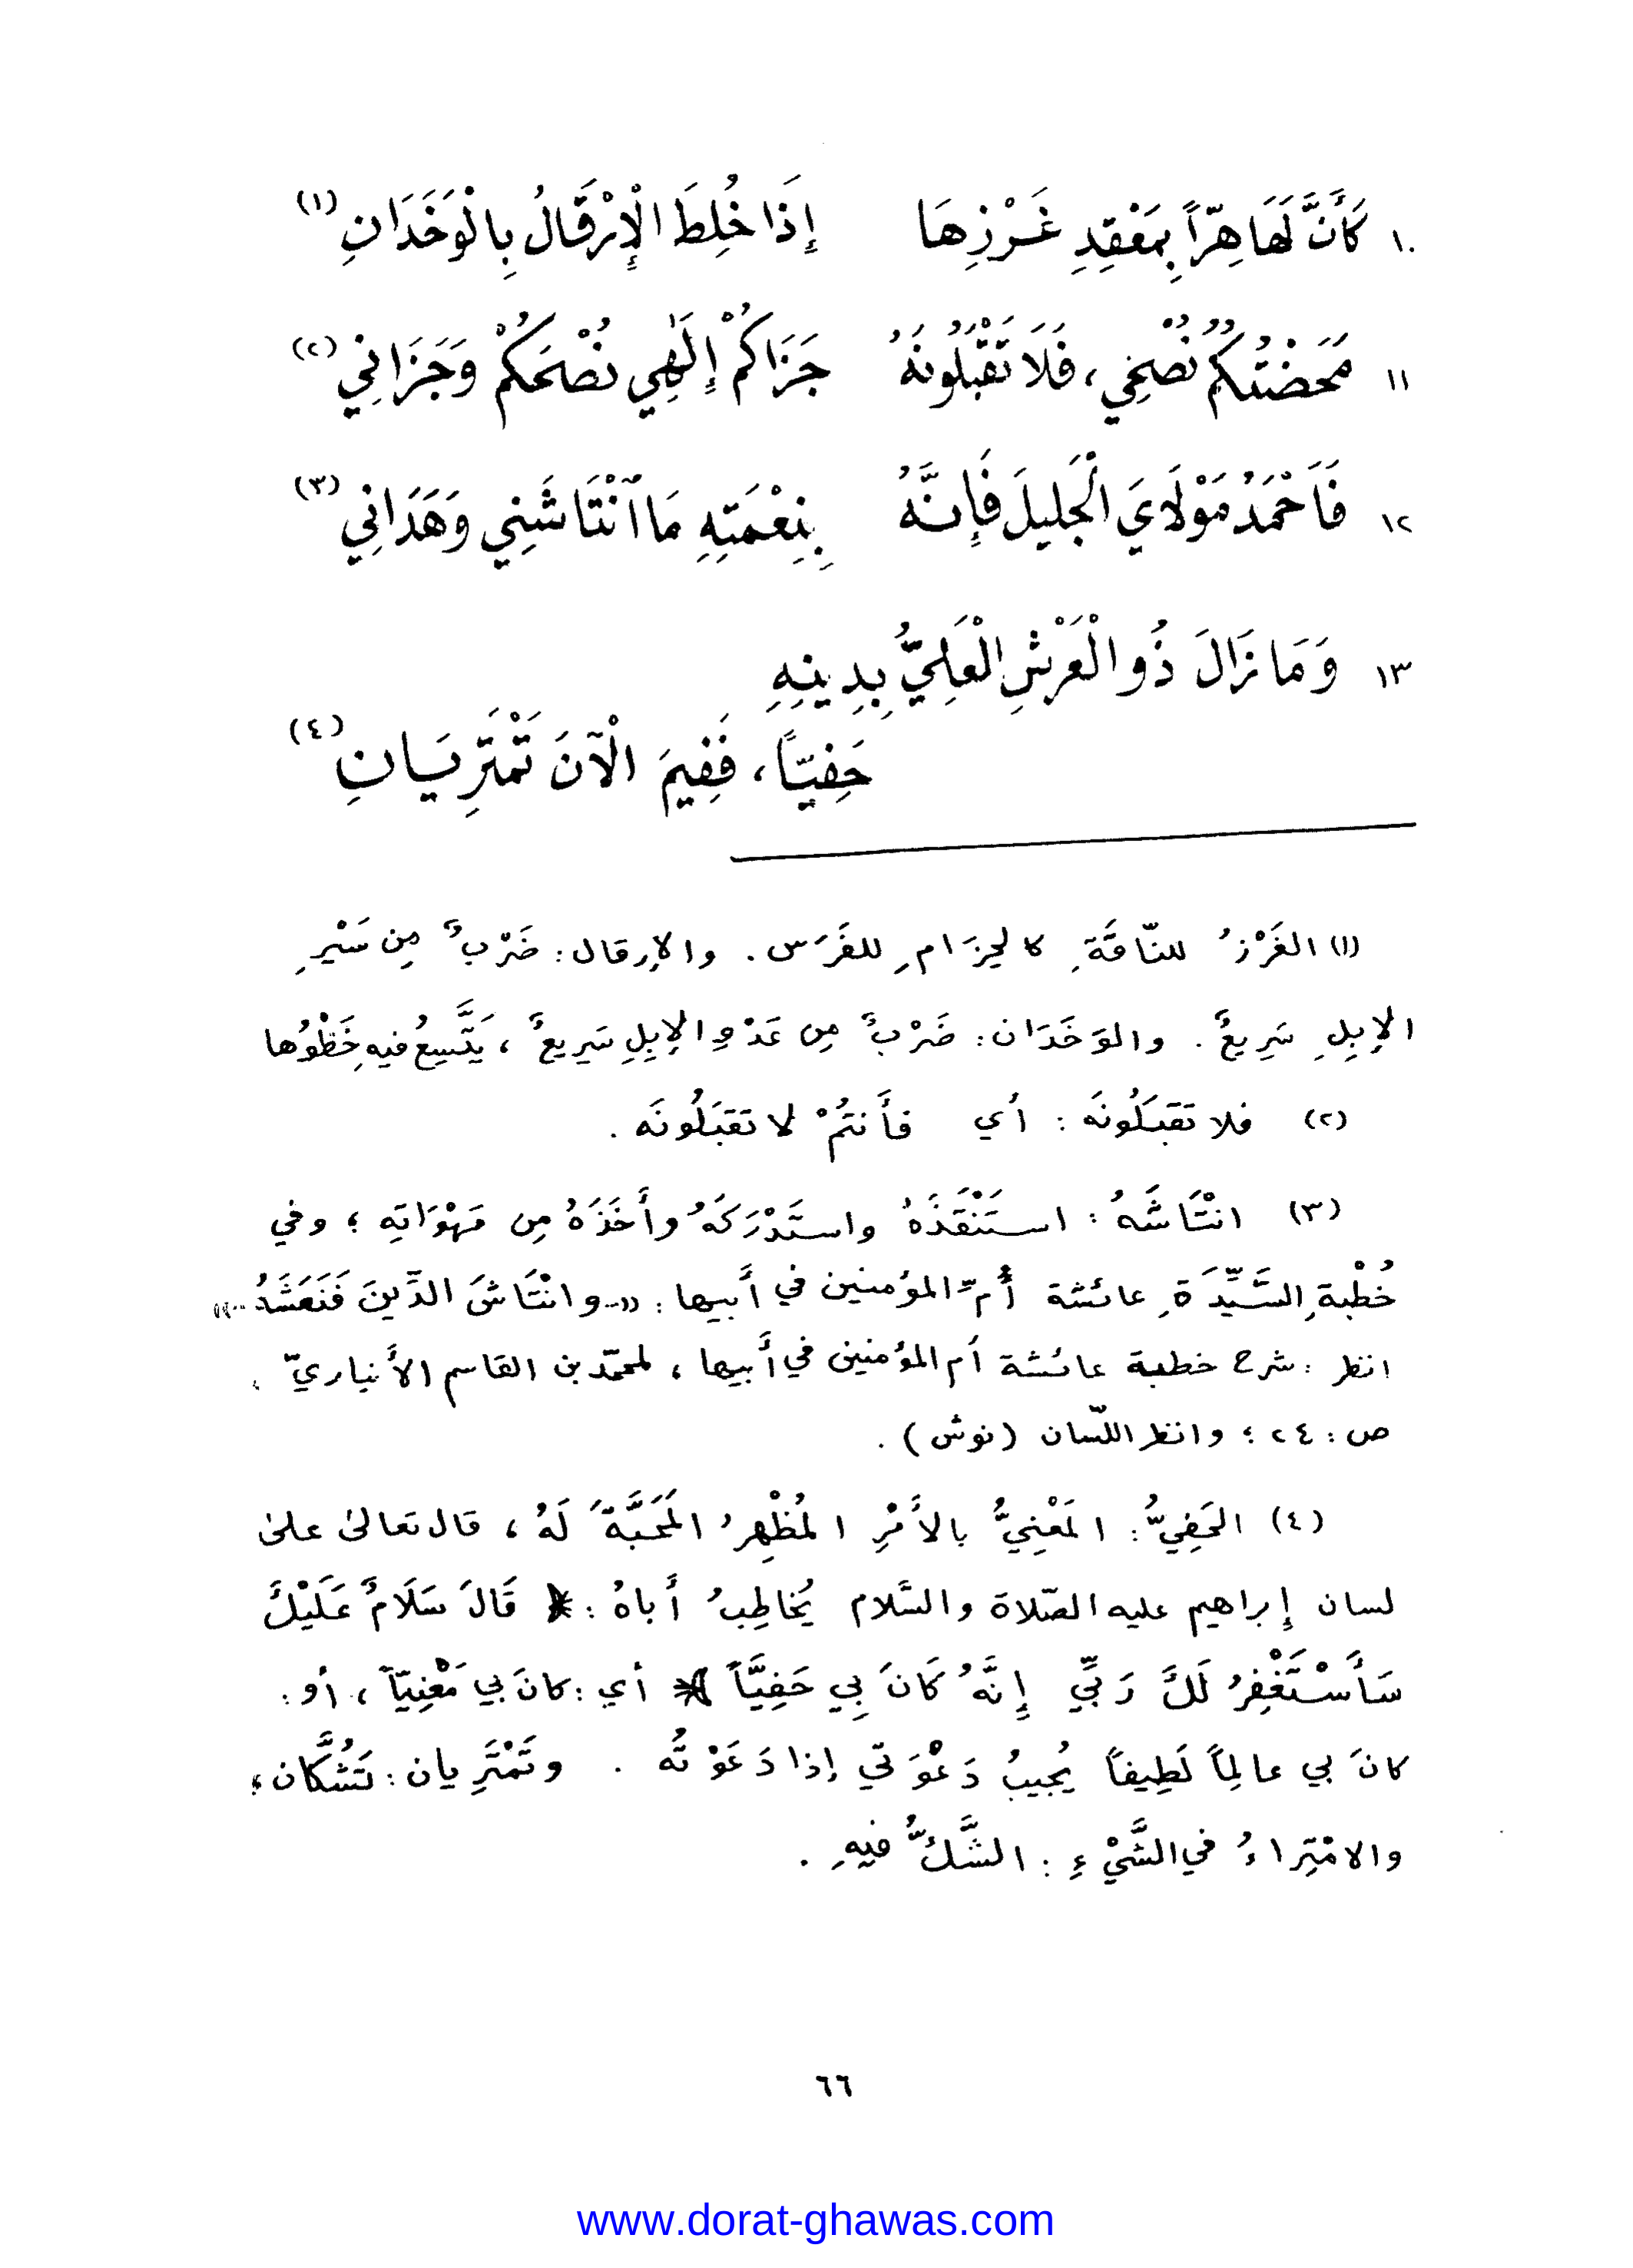 ١٠ كَأَنَّ لَهَا هِرّاً بِمَعْقِدِ غَرْزِهَا إِذَا خُلِطَ الْإِرْقَالُ بِالْوَخَدَانِ (١)
١١ مَحَضْتُكُمُ نُصْحِي، فَلَا تَقْبَلُونَهُ جَزَاكُمْ إِلَٰهِي نُصْحَكُمْ وَجَزَانِي (٢)
١٢ فَأَحْمَدُ مَوْلَايَ الْجَلِيلَ فَإِنَّهُ بِنِعْمَتِهِ مَا ٱنْتَاشَنِي وَهَدَانِي (٣)
١٣ وَمَا زَالَ ذُو الْعَرْشِ الْعَلِيُّ بِدِينِهِ
حَفِيّاً، فَفِيمَ الْآنَ تَمْتَرِيَانِ (٤)
(١) الغَرْزُ للنّاقَةِ كالحِزَامِ للفَرَس. والإرقال: ضَرْبٌ مِن سَيْرِ
الإبِلِ سَرِيعٌ. والوَخَدَان: ضَرْبٌ مِن عَدْوِ الإبِلِ سَرِيعٌ، يَتَّسِعُ فيه خَطْوُها
(٢) فلا تَقبَلُونَه: أي فأَنتُمْ لا تَقبَلُونَه.
(٣) انْتَاشَهُ: استَنْقَذَهُ واستَدْرَكَهُ وأَخَذَهُ مِن مَهْوَاتِه؛ وفي
خُطْبةِ السَّيِّدَةِ عائشة أُمِّ المؤمنين في أَبيها: «..وانْتَاشَ الدِّينَ فَنَعَشَهُ..»
انظر: شرح خطبة عائشة أم المؤمنين في أبيها، لمحمّد بن القاسم الأنباريّ،
ص: ٢٤؛ وانظر اللّسان (نوش).
(٤) الحَفِيُّ: المَعْنِيُّ بالأَمْرِ المُظْهِرُ المَحَبَّةَ لَهُ، قال تعالىٰ علىٰ
لسان إبراهيم عليه الصّلاة والسَّلام يُخاطِبُ أَباهُ: * قَالَ سَلَامٌ عَلَيْكَ
سَأَسْتَغْفِرُ لَكَ رَبِّي إِنَّهُ كَانَ بِي حَفِيَّاً * أي: كانَ بي مَعْنِيّاً، أو:
كانَ بي عالِماً لَطِيفاً يُجيبُ دَعْوَتي إذا دَعَوْتُه. وتَمْتَرِيان: تَشُكَّان؛
والامْتِرَاءُ في الشَّيْءِ: الشَّكُّ فيهِ.
٦٦
www.dorat-ghawas.com